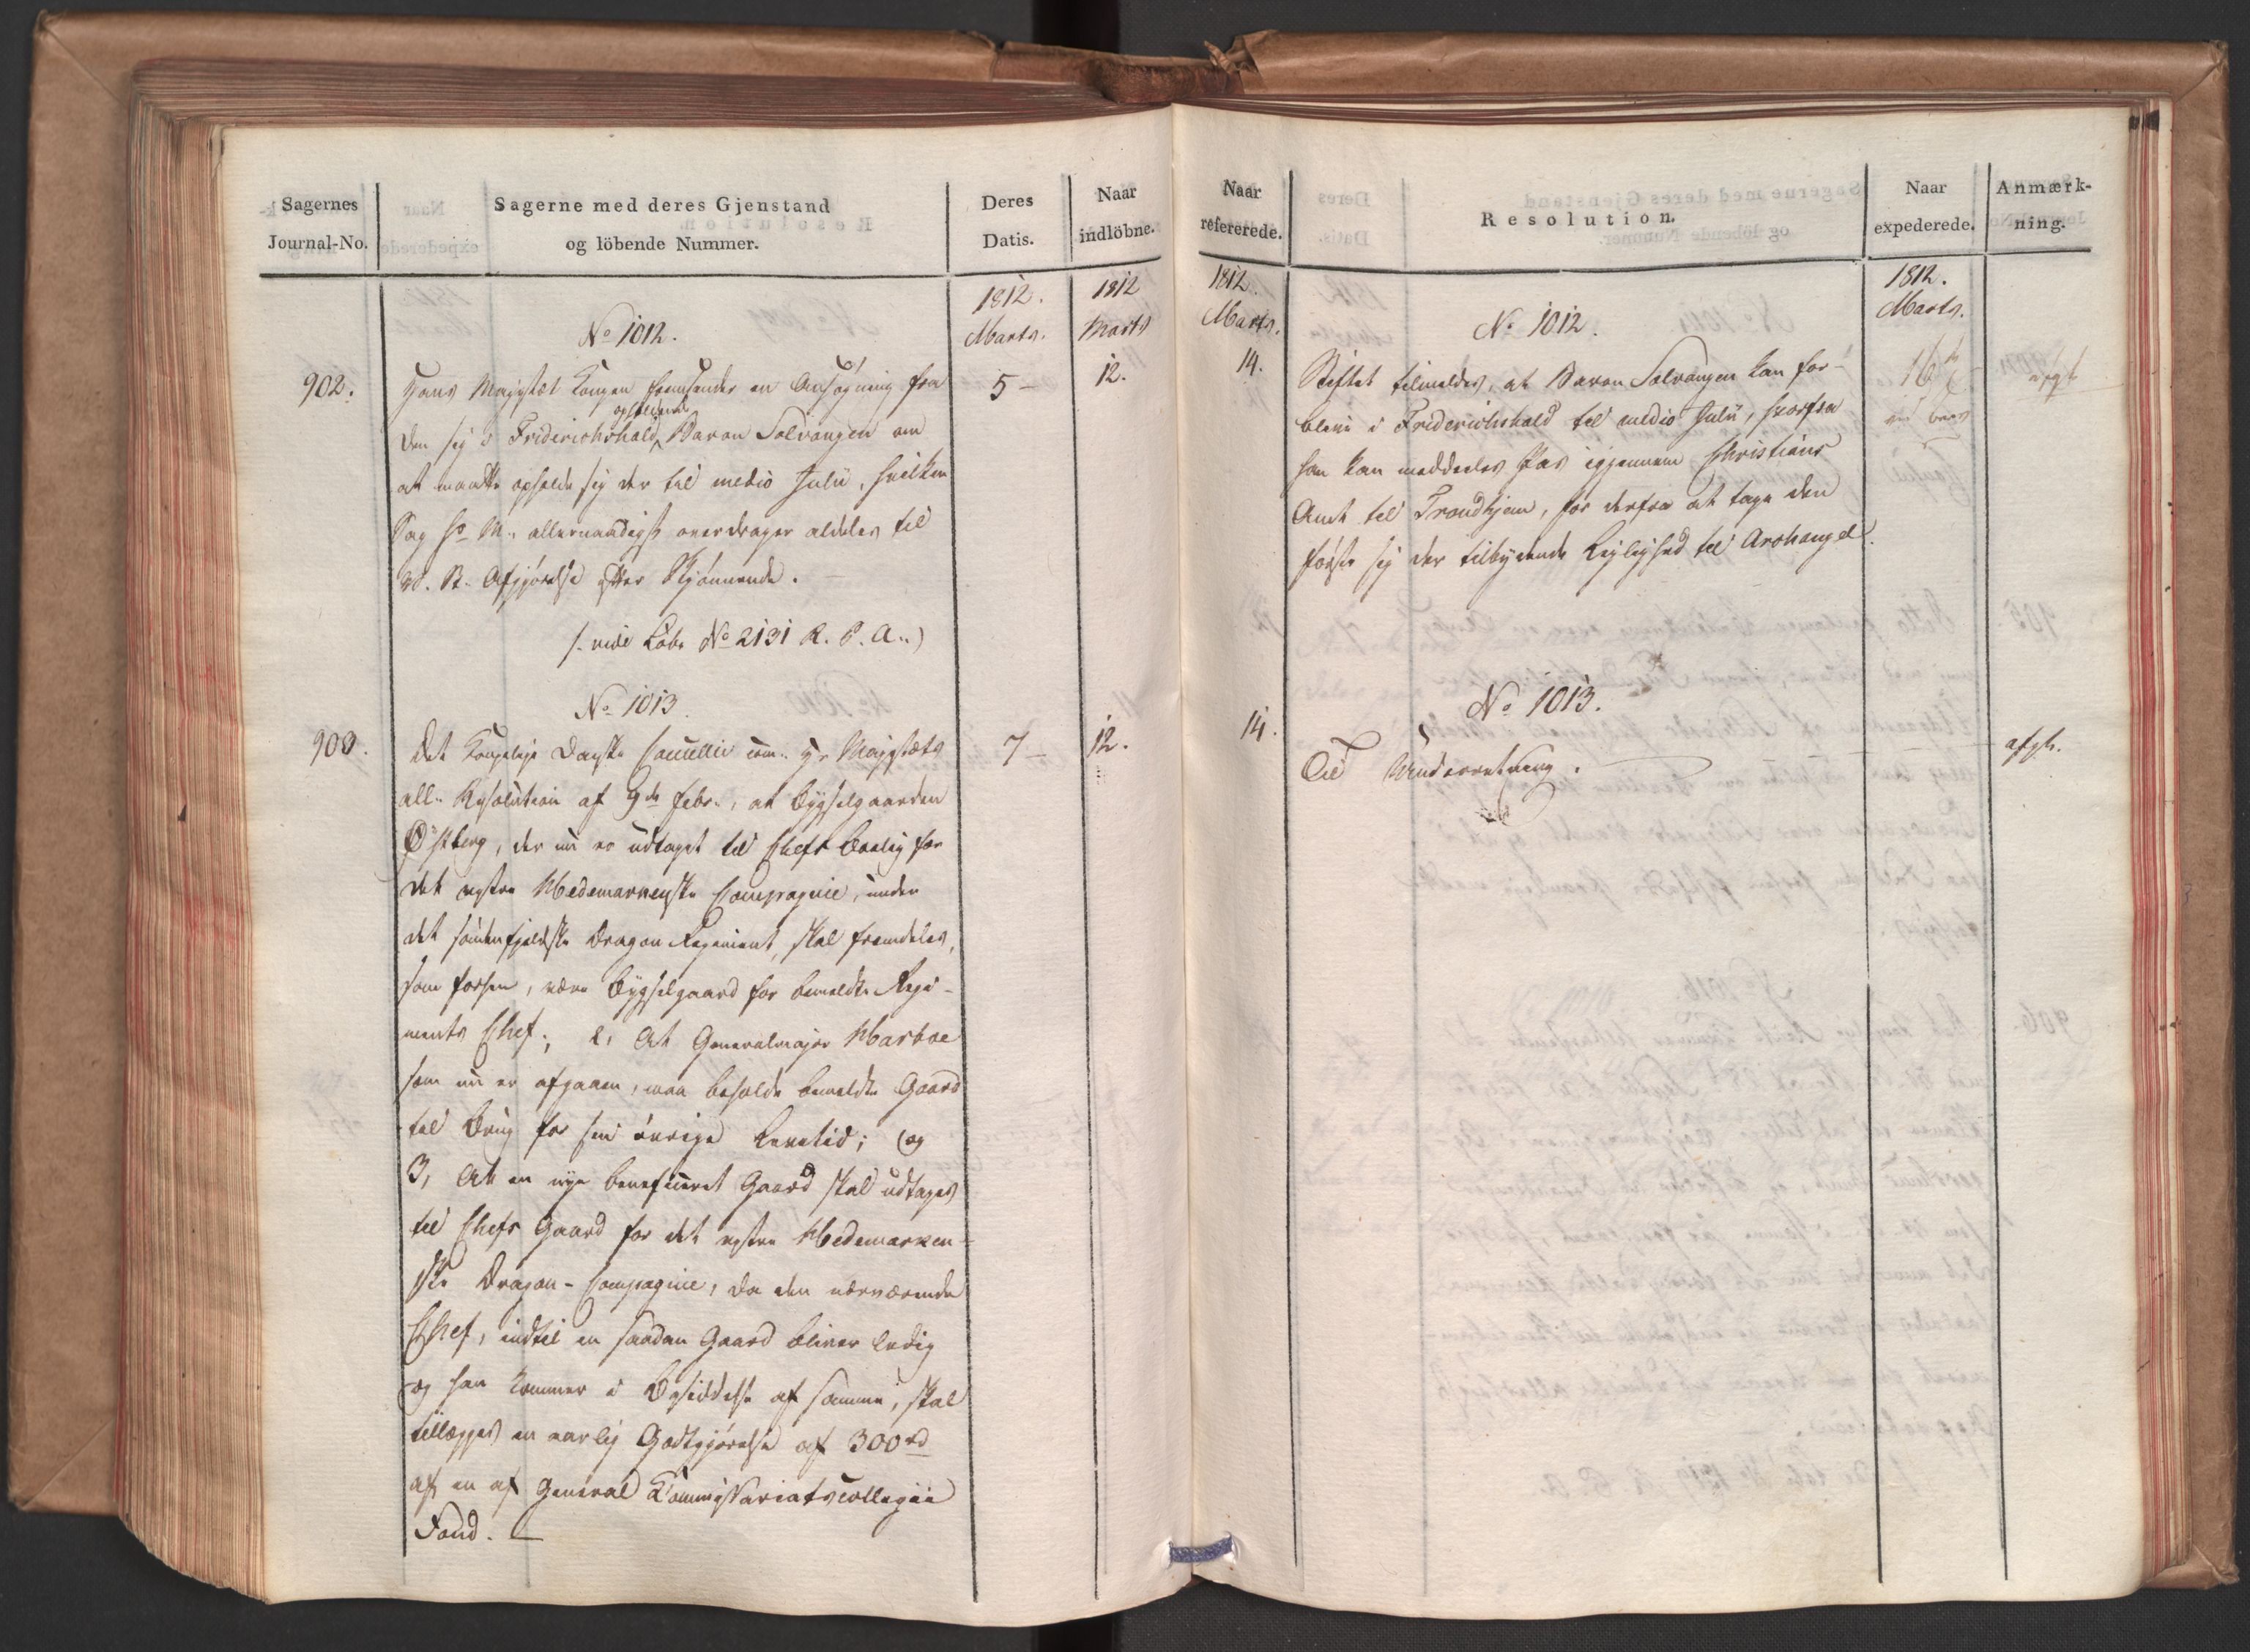 Sagernes
Journal-No.
Sagerne med deres Gjenstand
og löbende Nummer.
Deres
Datis.
Naar
indlöbne.
1812.
Marts.
1812
Marts
No 1012.
902.
Hans Majestæt Kongen fremsender en Ansøgning fra
5 –
12.
den sig i Friderichshald opholdende Baron Solvangen om
at maatte opholde sig der til medio Julii, hvilken
Sag H. M. allernaadigst overdrager aldeles til
R. C. Afgjørelse efter Skjønnende.
(vide Løbe No 2131 R. P. A.)
No 1013.
903.
Det Kongelige Danske Cancellie com. Hs Majestæts
7 –
12.
all. Resolution af 9de Febr., at Bygselgaarden
Østberg, der nu er udtaget til Chefs Bolig for
det vestre Hedemarkenske Compagnie, under
det søndenfjeldske Dragon Regiment, skal fremdeles,
som forhen, være Bygselgaard for bemeldte Regi-
ments Chef; 2, At Generalmajor Harboe
som nu er afgaaen, maa beholde bemeldte Gaard
til Brug for sin øvrige Levetid; og
3, At en nye beneficeret Gaard skal udtages
til Chefs Gaard for det vestre Hedemarken-
ske Dragon-Compagnie, da den nærværende
Chef, indtil en saadan Gaard bliver ledig
og han kommer i Besiddelse af samme, skal
tillægges en aarlig Godtgjørelse af 300 rd
af en af General Kommissariatscollegii
Fond. –
Naar
refererede.
Resolution.
Naar
expederede.
Anmærk-
ning.
1812.
Marts.
1812.
Marts.
No 1012.
14.
Stiftet tilmeldes, at Baron Solvangen kan for-
16
afgh
blive i Friderichshald til medio Julii, hvorfra
han kan meddeeles Pas igjennem Christians
Amt til Trondhjem, for derfra at tage den
første sig der tilbydende Leylighed til Archangel.
No 1013.
14.
Til Underretning.
afgh.